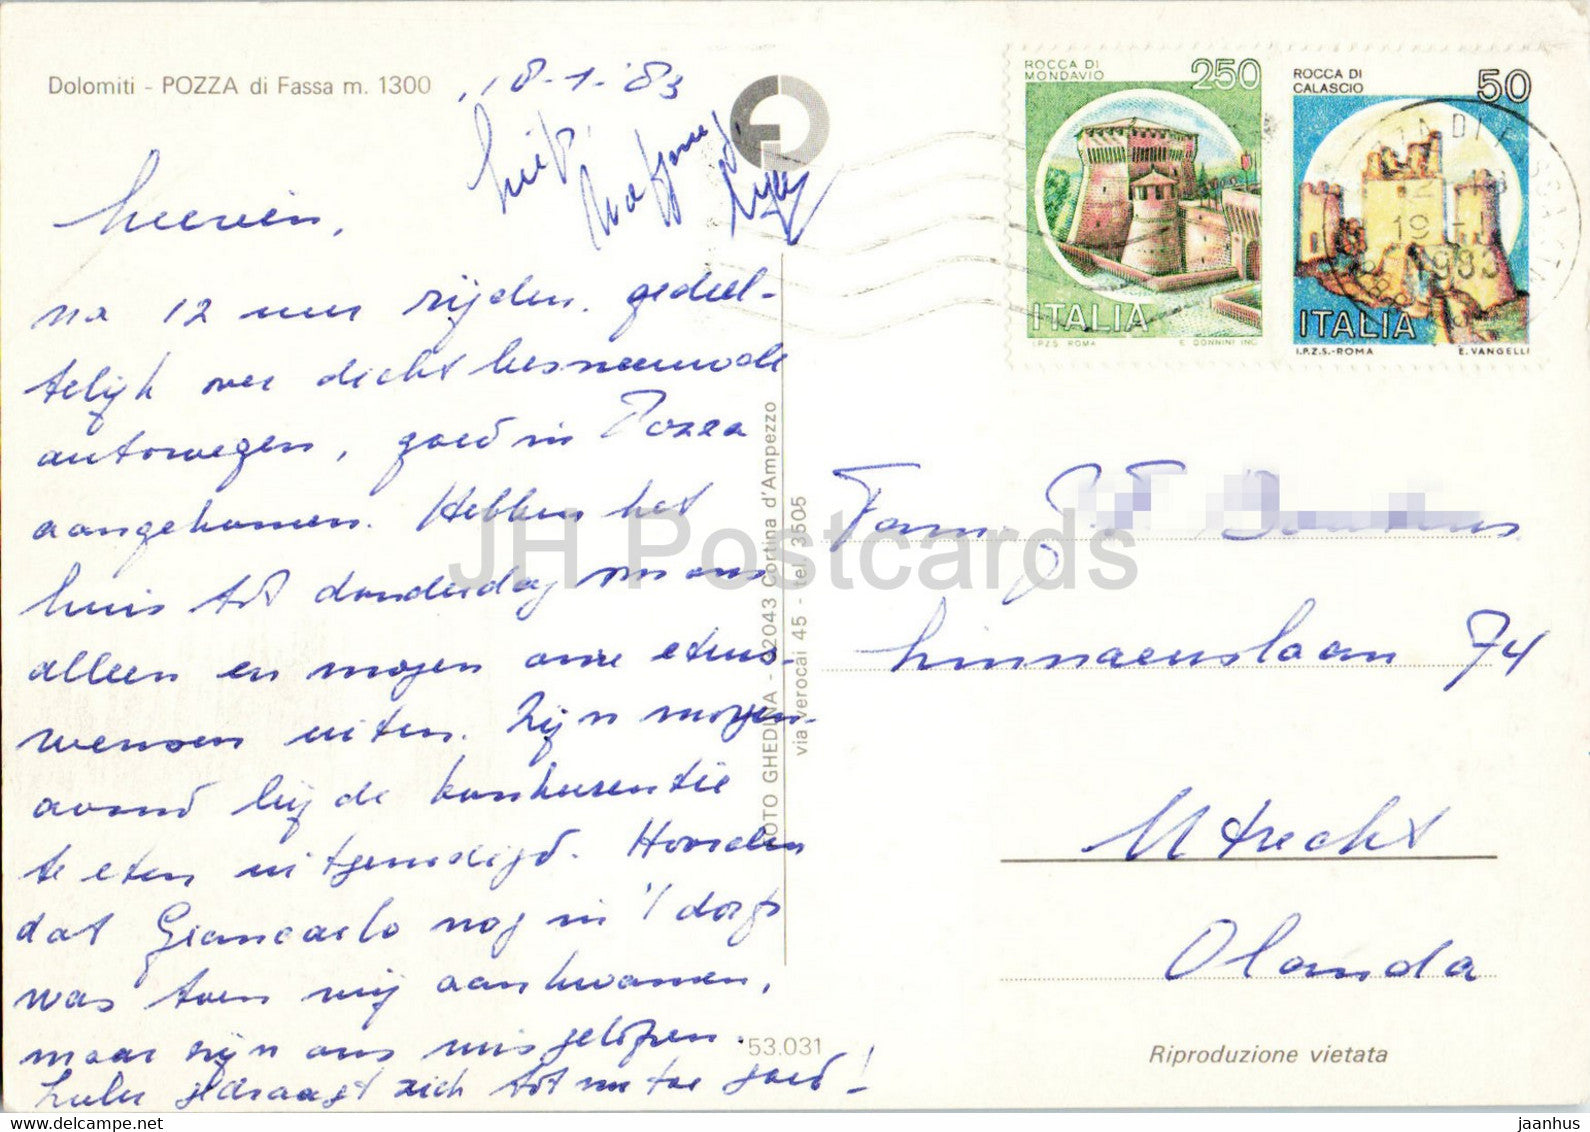 Dolomiti - POZZA di Fassa m. 1300
18-1-'83
Heeren,
na 12 uur rijden, gedeel-
telijk over dicht besneeuwde
autowegen, goed in Pozza
aangekomen. Hebben het
huis tot donderdag voor ons
alleen en mogen onze etens-
wensen uiten. Zijn morgen-
avond bij de konkurrentie
te eten uitgenodigd. Hoorden
dat Giancarlo nog in 't dorp
was toen wij aankwamen,
maar zijn ons misgelopen.
gedraagt zich tot nu toe goed!
FOTO GHEDINA - 32043 Cortina d'Ampezzo
via Verocai 45 - tel. 3505
53.031
ROCCA DI
MONDAVIO
250
ITALIA
I.P.Z.S. ROMA
E. DONNINI INC.
ROCCA DI
CALASCIO
50
ITALIA
I.P.Z.S.-ROMA
E. VANGELLI
19-1
1983
Fam.
Linnaeuslaan 74
Utrecht
Olanda
Riproduzione vietata
JH Postcards
jaanhus
www.delcampe.net